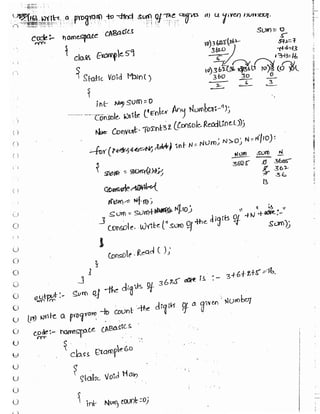 write a program to find sum of the digits in a given number.
code:- namespace CABasics
{
class Example59
{
Static void Main()
{
int sum=0
Console.Write("Enter Any Number:-");
Convert.ToInt32(Console.ReadLine());
for( int N=Num; N>0; N=N/10):
{
Sum = Sum+ N%10;
}
Console.write("sum of the digits of "+N+" is:-"
Sum);
Console.Read();
}
}
}
Sum = 0
5
5+2=7
7+6=13
+3=16
10)3625(362
3620
5
10)362(36
360
2
30
6
0
3
Num Sum N
3625 0 3625
5 362
7 36
13
output:- Sum of the digits of 3625 is :- 3+6+2+5=16.
write a program to count the digits of a given number
code:- namespace CABasics
{
class Example60
{
Static void Main
{
int Num, count=0;